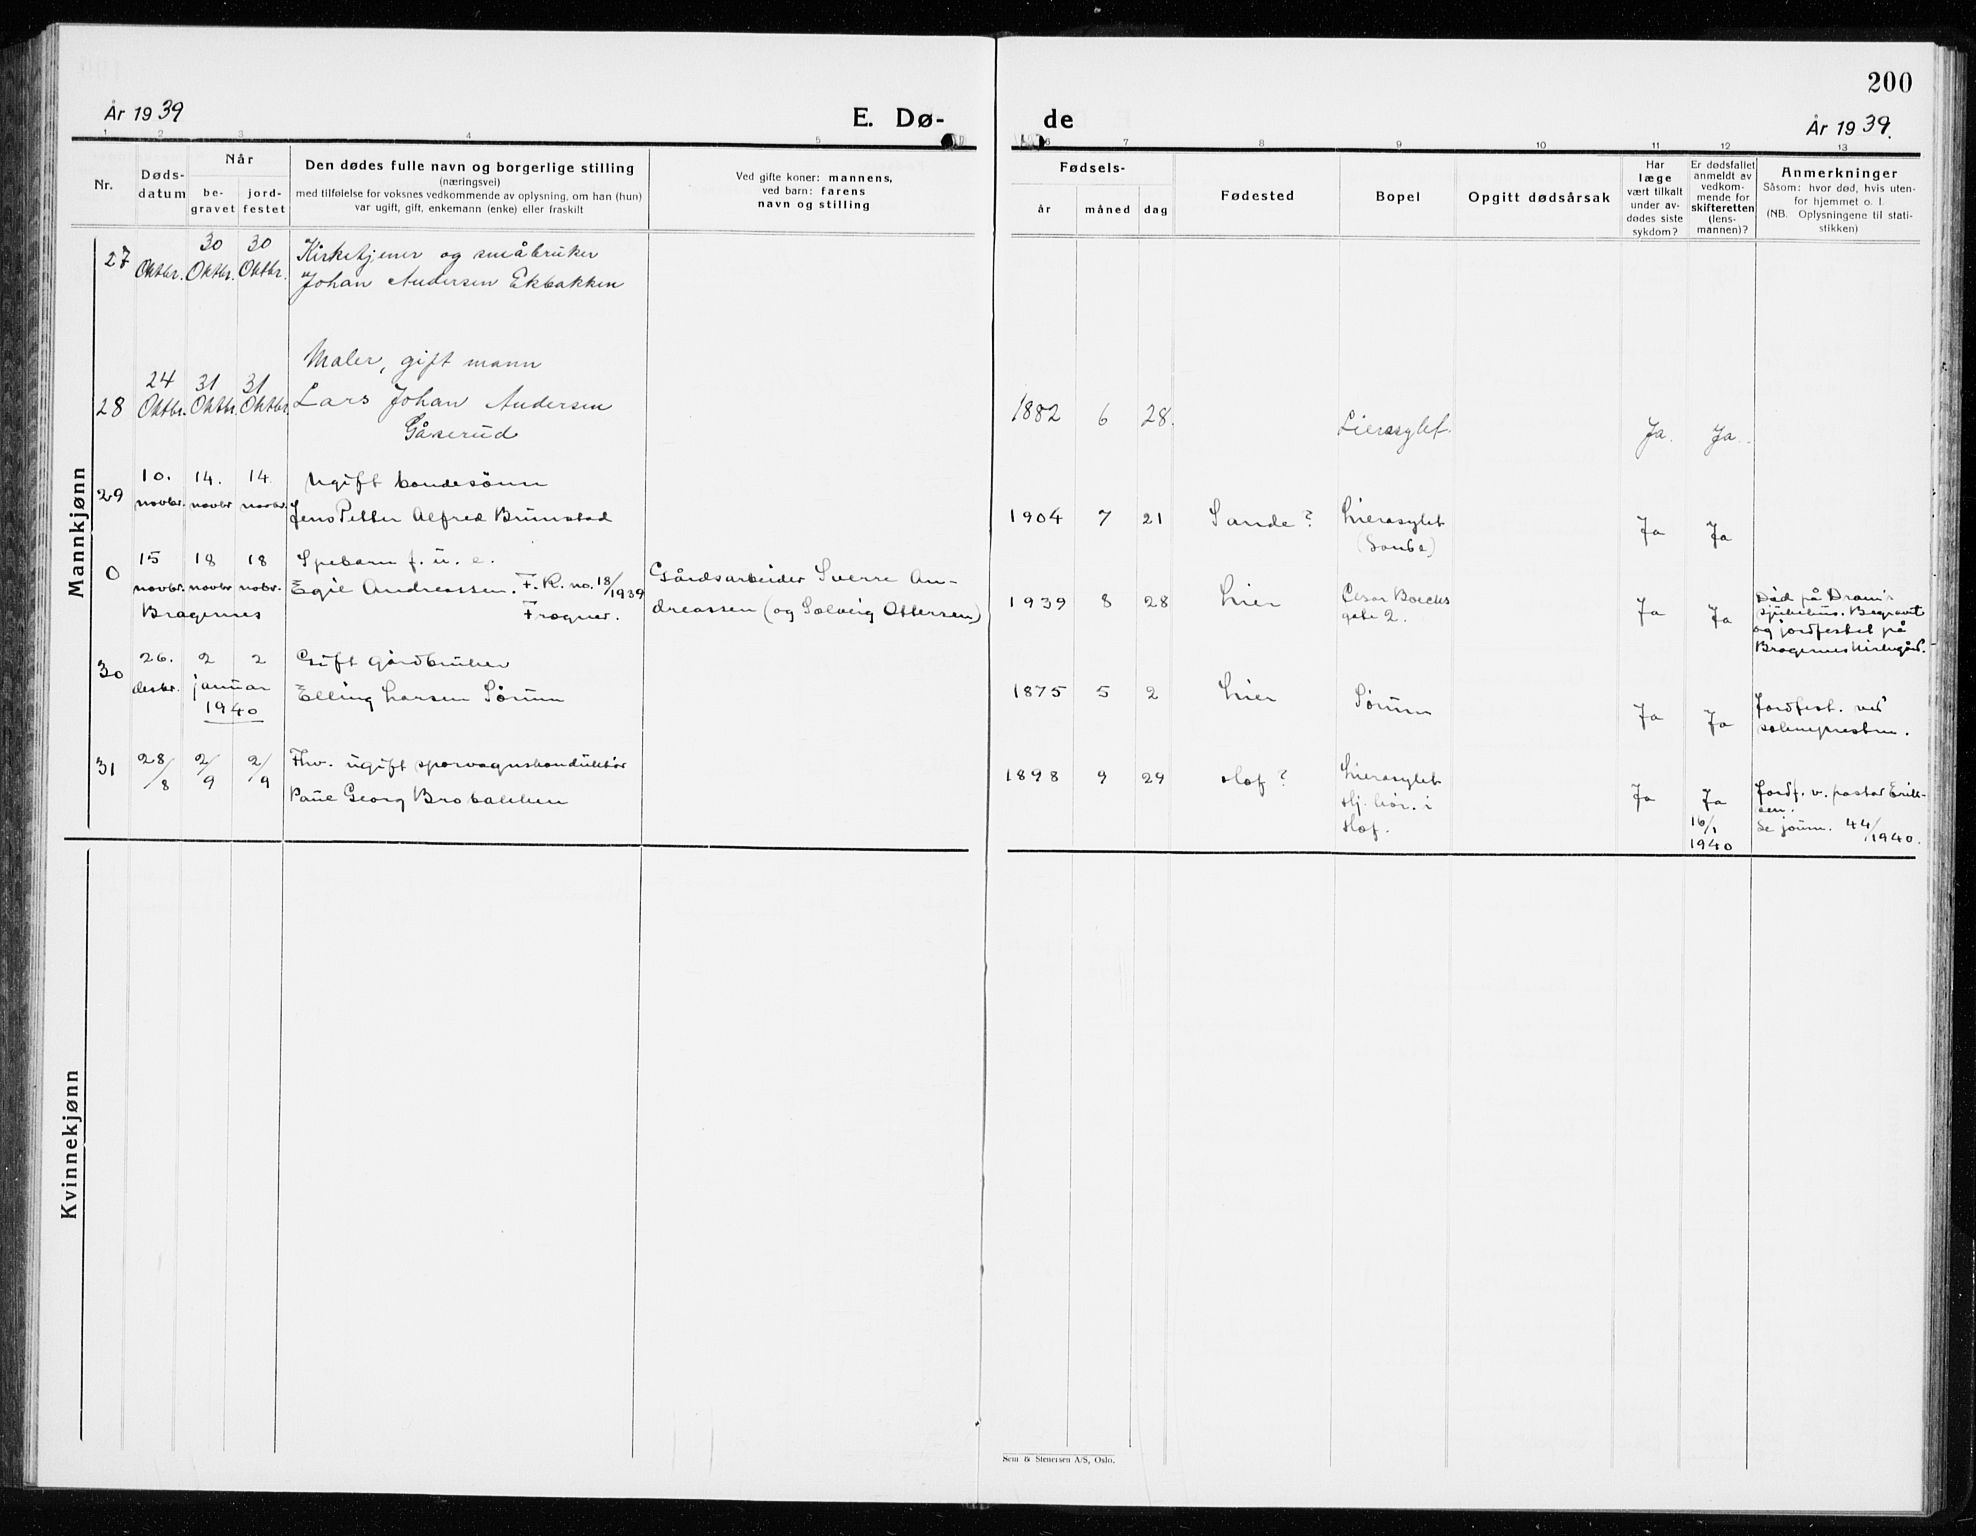 200
År 1939
E. Dø-
de
År 1939.
1 2 3 4 5 6 7 8 9 10 11 12 13
Nr.
Døds-
datum
Når
be-
gravet
jord-
festet
Den dødes fulle navn og borgerlige stilling
(næringsvei)
med tilføielse for voksnes vedkommende av oplysning, om han (hun)
var ugift, gift, enkemann (enke) eller fraskilt
Ved gifte koner: mannens,
ved barn: farens
navn og stilling
Fødsels-
år
måned
dag
Fødested
Bopel
Opgitt dødsårsak
Har
læge
vært tilkalt
under av-
dødes siste
sykdom?
Er dødsfallet
anmeldt av
vedkom-
mende for
skifteretten
(lens-
mannen)?
Anmerkninger
Såsom: hvor død, hvis uten-
for hjemmet o. l.
(NB. Oplysningene til stati-
stikken)
Mannkjønn
27
Oktbr.
30
Oktbr.
30
Oktbr.
Kirketjener og småbruker
Johan Andersen Ekbakken
28
24
Oktbr.
31
Oktbr.
31
Oktbr.
Maler, gift mann
Lars Johan Andersen
Gåserud
1882 6 28.
Lierasylet.
Ja.
Ja.
29
10.
novbr.
14.
novbr
14
novbr.
Ugift bondesönn
Jens Petter Alfred Brunstad
1904 7 21
Sande?
Lierasylet
(Sande)
Ja
Ja
0
15
novbr.
18
novbr
18
nobr.
Bragernes
Spebarn f. u. e.
Egil Andreassen. F. R. no. 18/1939
Frogner.
Gårdsarbeider Sverre An-
dreassen (og Solveig Ottersen)
1939 8 28
Lier
Cesar Boecks
gate 2.
Ja
Ja
Död på Dram's
sjukehus. Begravet
og jordfestet på
Bragernes kirkegård.
30
26.
desbr.
2 2
januar
1940
Gift gårdbruker
Elling Larsen Sörum
1875 5 2
Lier
Sörum
Ja
Ja
Jordfest. ved
soknepresten.
31
28/8
2/9
2/9
Fhv. ugift sporvognskonduktör
Paul Georg Brobakken
1898 9 29
Hof?
Lierasylet
Hj. hör. i
Hof.
Ja
Ja
16/1
1940
Jordf. v. pastor Erik-
sen.
Se journ. 44/1940.
Kvinnekjønn
Sem & Stenersen A/S, Oslo.